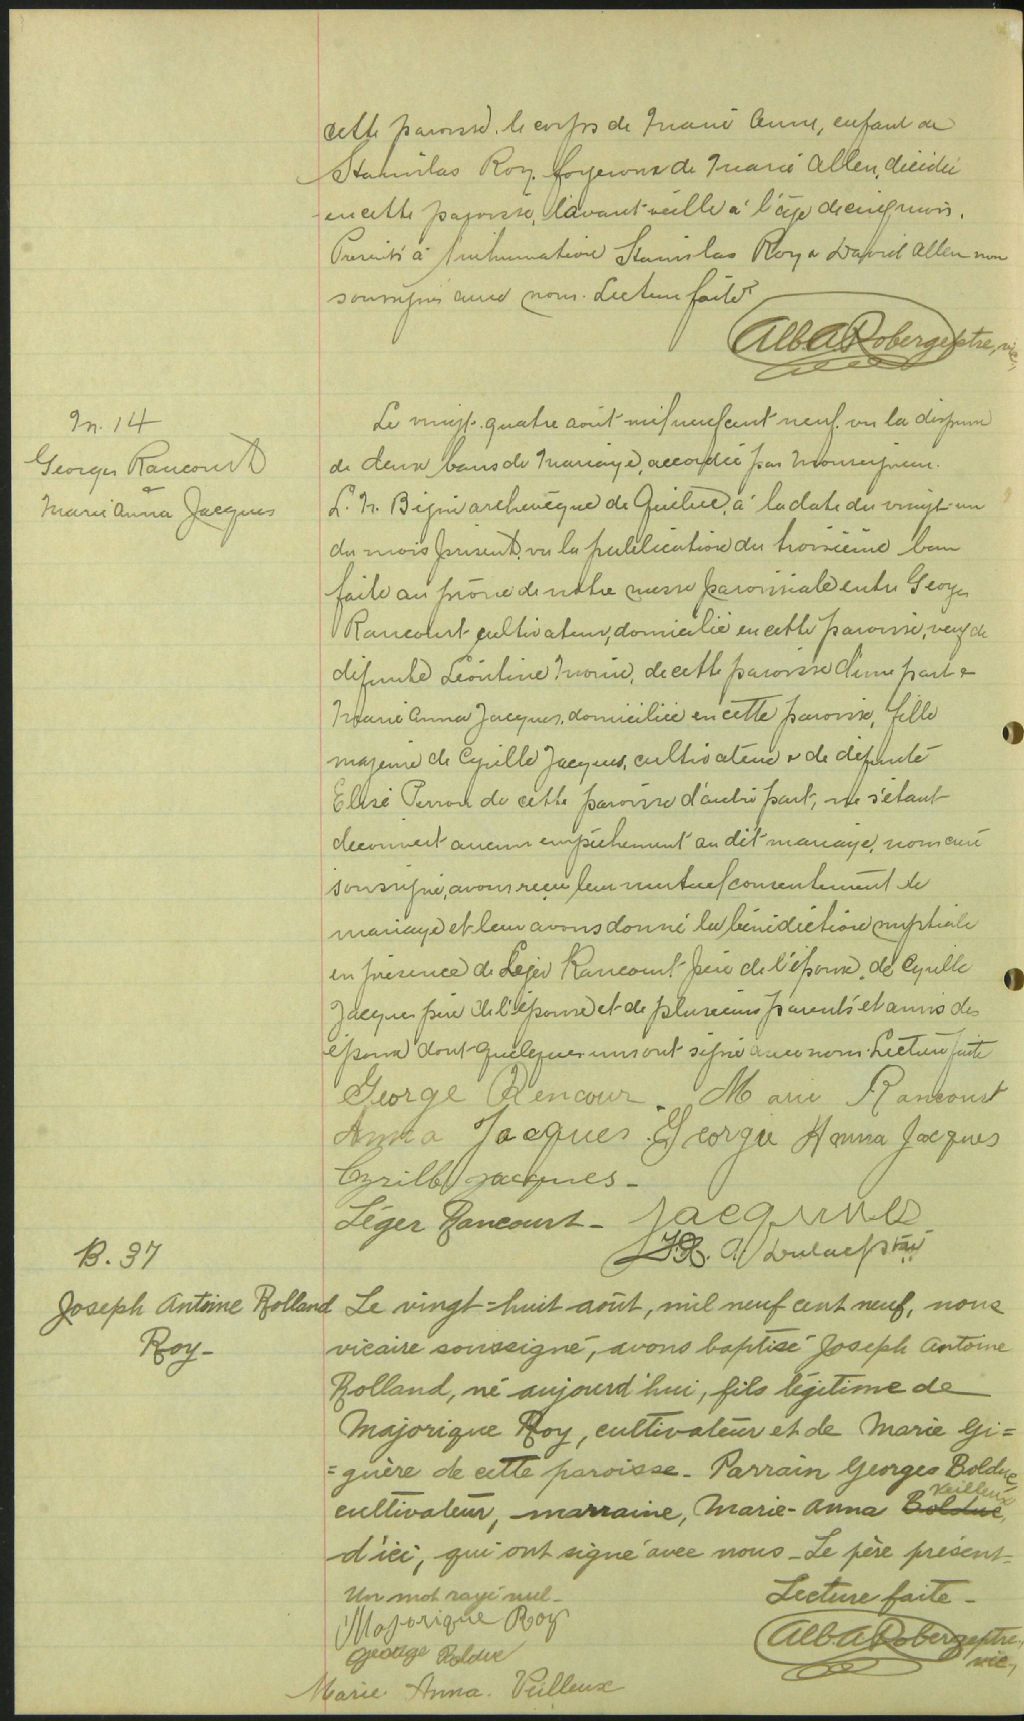 cette paroisse, le corps de Marie Anne, enfant de
Stanislas Roy, forgeron & de Marie Allen, décédée
en cette paroisse, l'avant veille à l'âge de cinq mois.
Présents à l'inhumation Stanislas Roy & David Allen non
soussignés avec nous. Lecture faite
Alb. A. Roberge ptre, vic.
M. 14
Georges Rancourt
&
Marie Anna Jacques
Le vingt-quatre août mil neuf cent neuf, vu la dispense
de deux bans de mariage, accordée par Monseigneur
L. N. Bégin archevêque de Québec, à la date du vingt-un
du mois présent, vu la publication du troisième ban
faite au prône de notre messe paroissiale entre Georges
Rancourt cultivateur, domicilié en cette paroisse, veuf de
défunte Léontine Morin, de cette paroisse d'une part &
Marie Anna Jacques, domiciliée en cette paroisse, fille
majeure de Cyrille Jacques, cultivateur & de défunte
Elise Perron de cette paroisse d'autre part, ne s'étant
découvert aucun empêchement au dit mariage, nous curé
soussigné, avons reçu leur mutuel consentement de
mariage et leur avons donné la bénédiction nuptiale
en présence de Léger Rancourt père de l'époux, de Cyrille
Jacques père de l'épouse et de plusieurs parents et amis des
époux dont quelques uns ont signé avec nous. Lecture faite
George Rencour. Marie Rancourt
Anna Jacques. Georgie Hanna Jacques
Cyrille Jacques -
Léger Rancourt - Jacques
J. A. Dulac ptre
B. 37
Joseph Antoine Rolland
Roy -
Le vingt=huit août, mil neuf cent neuf, nous
vicaire soussigné, avons baptisé Joseph Antoine
Rolland, né aujourd'hui, fils légitime de
Majorique Roy, cultivateur et de Marie Gi=
=guère de cette paroisse - Parrain Georges Bolduc,
Veilleux
cultivateur, marraine, Marie-Anna Bolduc,
d'ici, qui ont signé avec nous - Le père présent -
Un mot rayé nul - Lecture faite -
Majorique Roy
George Bolduc
Alb. A. Roberge ptre,
vic,
Marie Anna. Veilleux